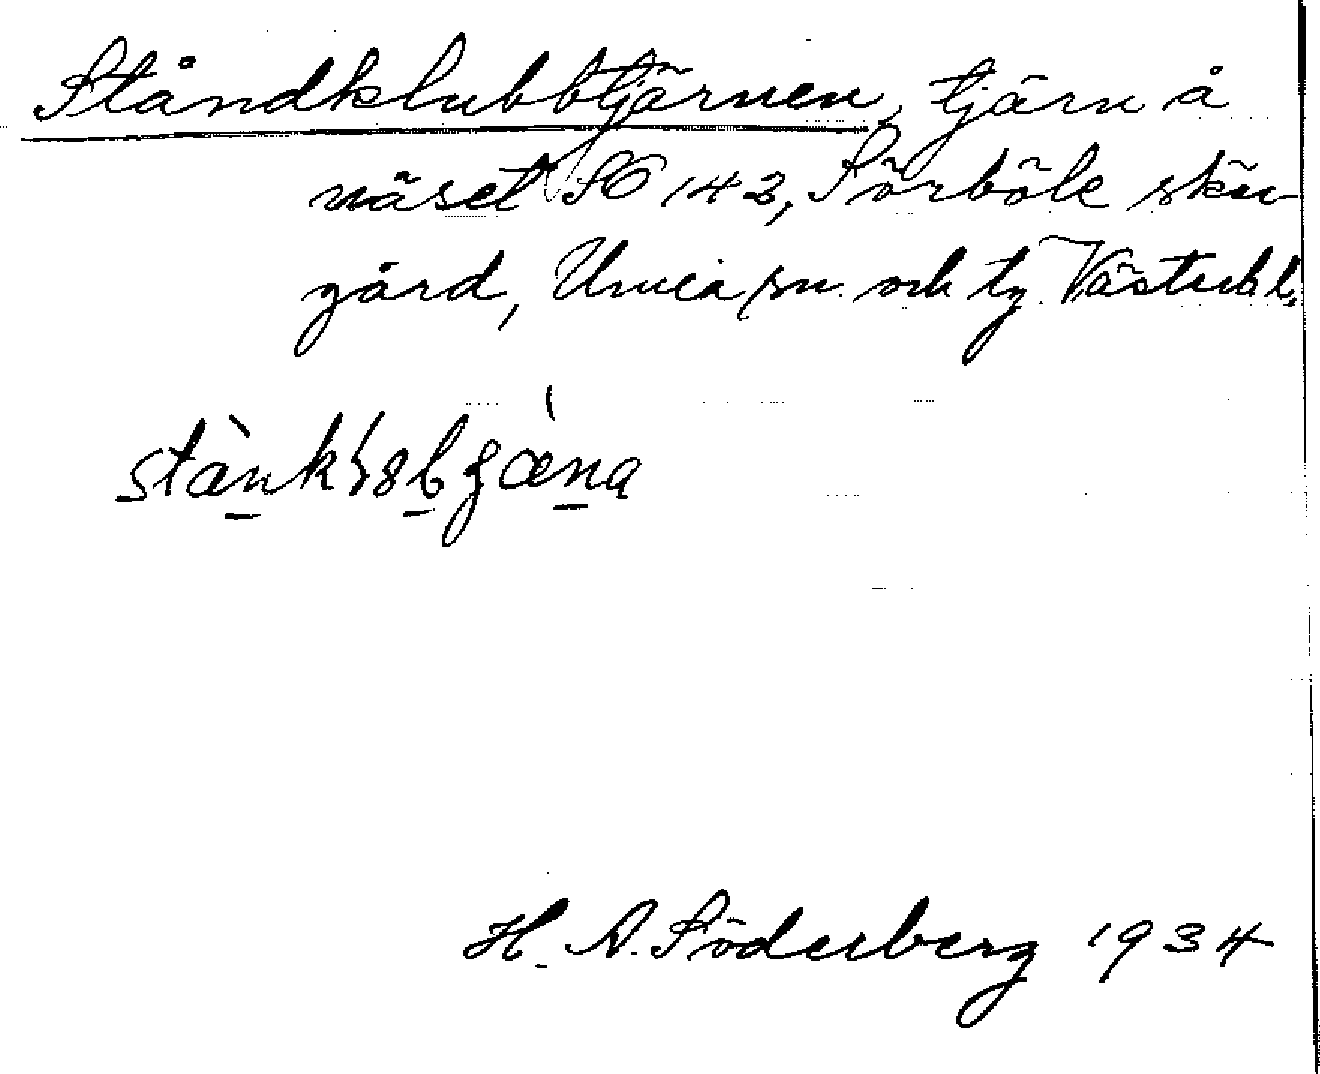 Ståndklubbtjärnen, tjärn å
näset SO 143, Sörböle skär-
gård, Umeå sn. och tg. Västerb. l.
H. A. Söderberg 1934